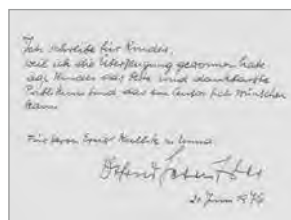 Ich schreibe für Kinder,
weil ich die Überzeugung gewonnen habe
daß Kinder das beste und dankbarste
Publikum sind das ein Autor sich wünschen
kann
Für Herrn Ernst
Otfried Preußler
2. Juni 19